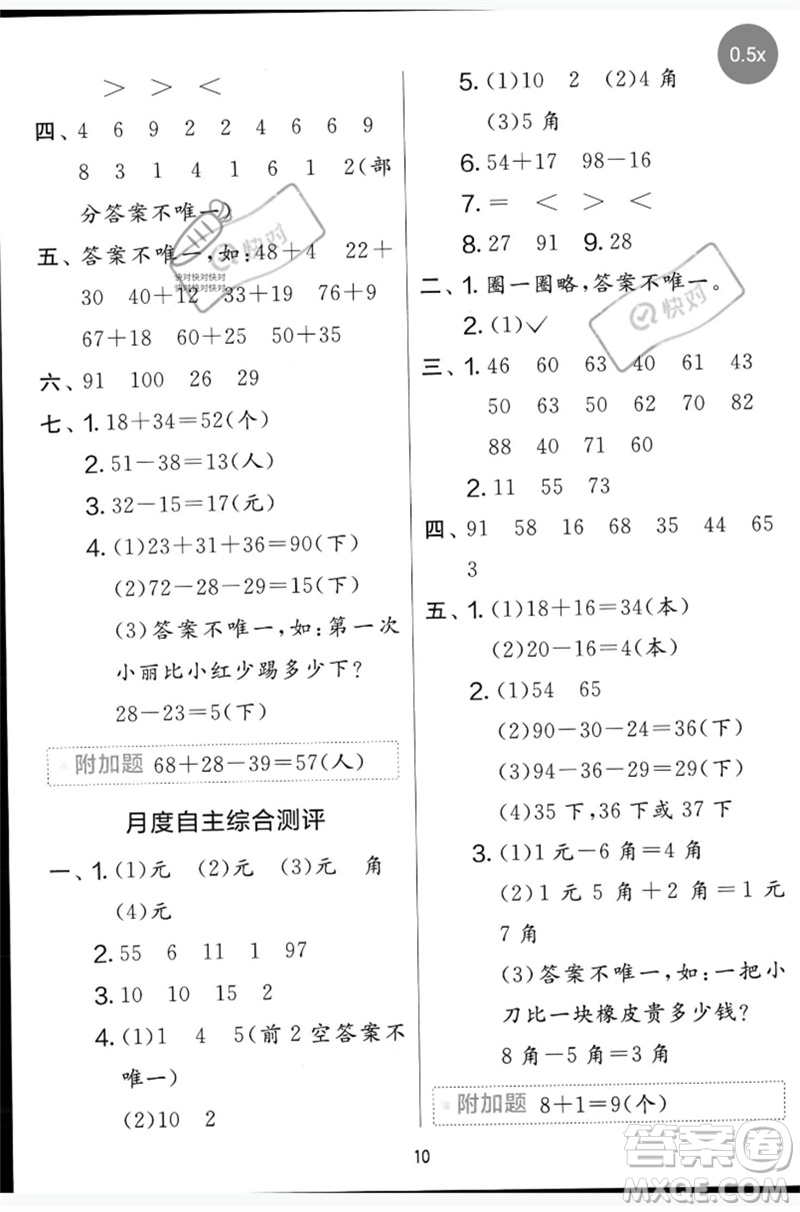 0.5x
＞ ＞ ＜
四、4 6 9 2 2 4 6 6 9
8 3 1 4 1 6 1 2(部
分答案不唯一)
五、答案不唯一,如:48＋4 22＋
30 40＋12 33＋19 76＋9
67＋18 60＋25 50＋35
六、91 100 26 29
七、1. 18＋34＝52(个)
2. 51－38＝13(人)
3. 32－15＝17(元)
4. (1)23＋31＋36＝90(下)
(2)72－28－29＝15(下)
(3)答案不唯一,如:第一次
小丽比小红少踢多少下?
28－23＝5(下)
附加题 68＋28－39＝57(人)
月度自主综合测评
一、1. (1)元 (2)元 (3)元 角
(4)元
2. 55 6 11 1 97
3. 10 10 15 2
4. (1)1 4 5(前2空答案不
唯一)
(2)10 2
5. (1)10 2 (2)4角
(3)5角
6. 54＋17 98－16
7. ＝ ＜ ＞ ＜
8. 27 91 9. 28
二、1. 圈一圈略,答案不唯一。
2. (1)✓
三、1. 46 60 63 40 61 43
50 50 62 70 70 82
88 40 70 60
2. 11 55 73
四、91 58 16 68 35 44 65
3
五、1. (1)18＋16＝34(本)
(2)20－16＝4(本)
2. (1)54 65
(2)90－30－24＝36(下)
(3)94－36－29＝29(下)
(4)35下、36下或37下
3. (1)1元－6角＝4角
(2)1元5角＋2角＝1元
7角
(3)答案不唯一,如:一把小
刀比一块橡皮贵多少钱?
8角－5角＝3角
附加题 8＋1＝9(个)
10
快对
快对快对快对
快对快对快对
快对
答案卷
MXQE.COM